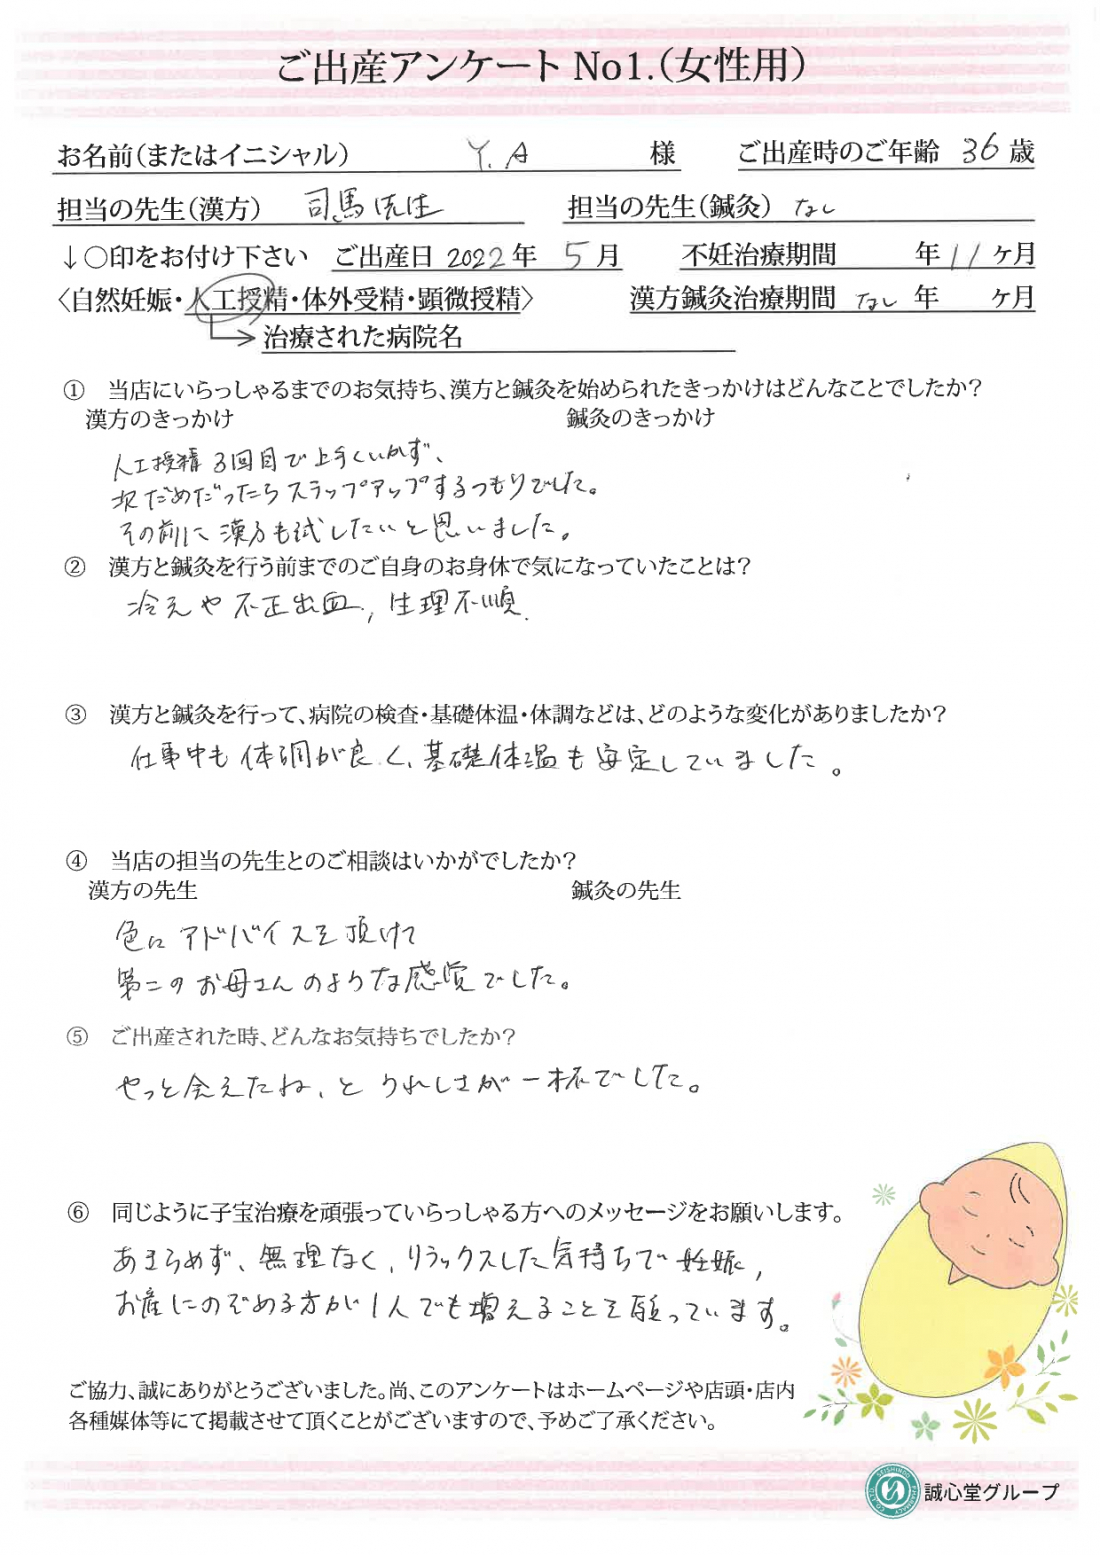 ご出産アンケート No1.(女性用)
お名前(またはイニシャル) Y.A 様 ご出産時のご年齢 36 歳
担当の先生(漢方) 司馬先生 担当の先生(鍼灸) なし
↓○印をお付け下さい ご出産日 2022年 5月 不妊治療期間 年 11ヶ月
〈自然妊娠・人工授精・体外受精・顕微授精〉 漢方鍼灸治療期間 なし 年 ヶ月
治療された病院名
① 当店にいらっしゃるまでのお気持ち、漢方と鍼灸を始められたきっかけはどんなことでしたか?
漢方のきっかけ 鍼灸のきっかけ
人工授精3回目で上手くいかず、
次だめだったらステップアップするつもりでした。
その前に漢方も試したいと思いました。
② 漢方と鍼灸を行う前までのご自身のお身休で気になっていたことは?
冷えや不正出血, 生理不順.
③ 漢方と鍼灸を行って、病院の検査・基礎体温・体調などは、どのような変化がありましたか?
仕事中も体調が良く、基礎体温も安定していました。
④ 当店の担当の先生とのご相談はいかがでしたか?
漢方の先生 鍼灸の先生
色にアドバイスを頂けて
第二のお母さんのような感覚でした。
⑤ ご出産された時、どんなお気持ちでしたか?
やっと会えたね、とうれしさが一杯でした。
⑥ 同じように子宝治療を頑張っていらっしゃる方へのメッセージをお願いします。
あきらめず、無理なく、リラックスした気持ちで妊娠,
お産にのぞめる方が1人でも増えることを願っています。
ご協力、誠にありがとうございました。尚、このアンケートはホームページや店頭・店内
各種媒体等にて掲載させて頂くことがございますので、予めご了承ください。
誠心堂グループ